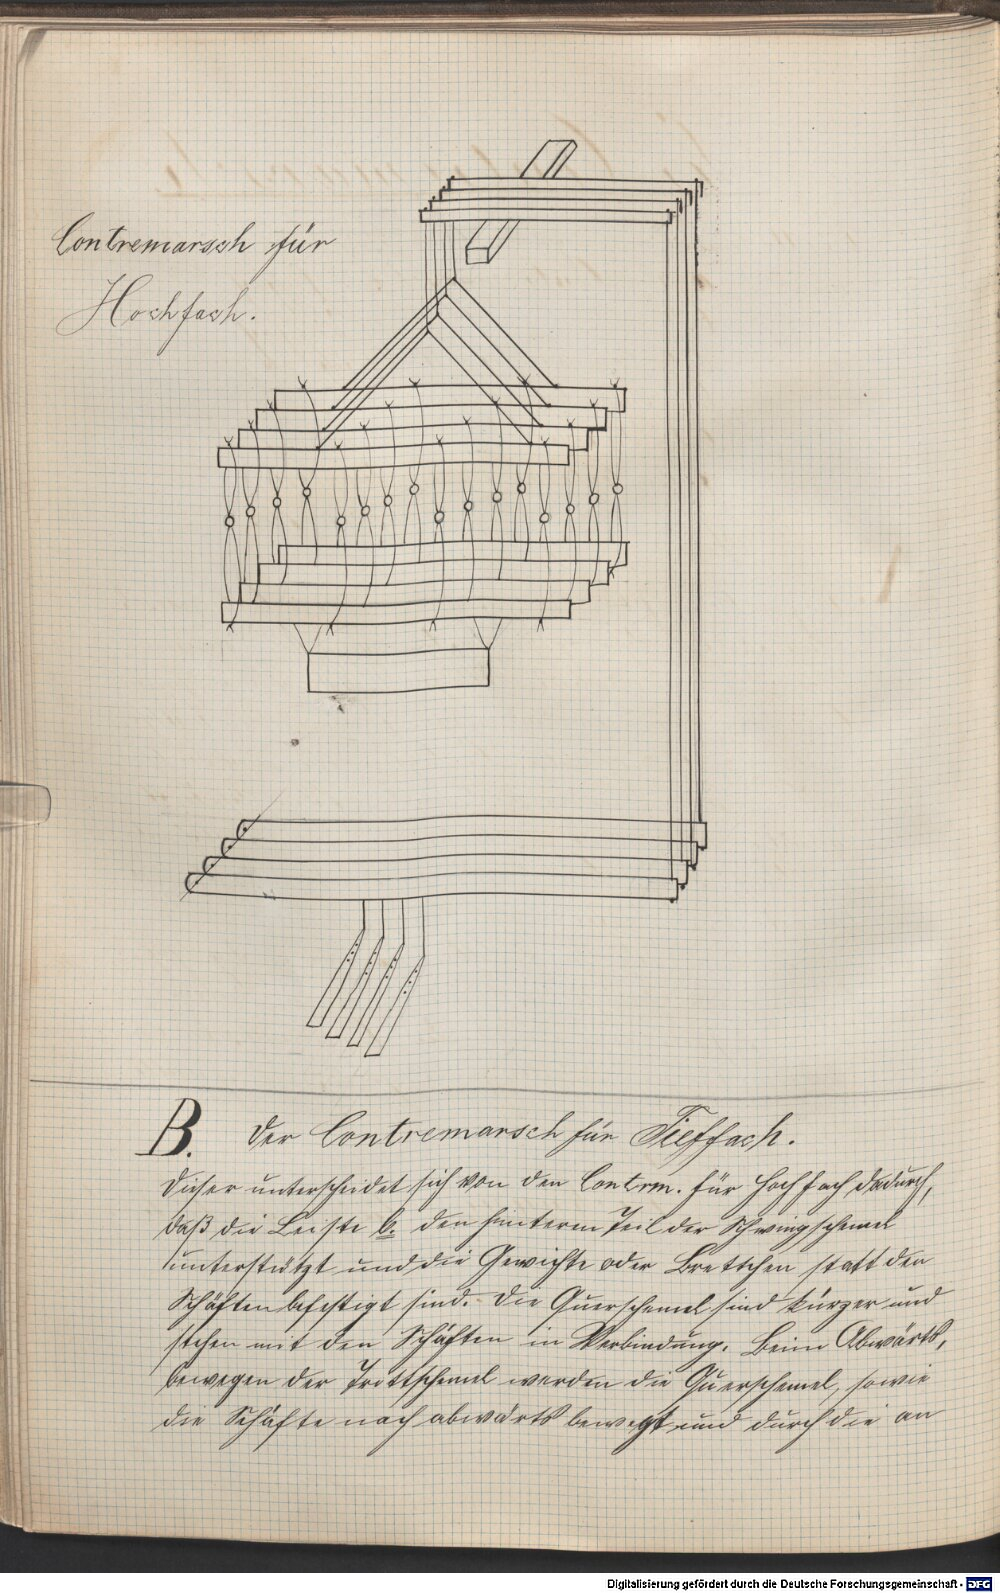 Contremarsch für
Hochfach.
B. Der Contremarsch für Tieffach.
Dieser unterscheidet sich von den Contrm. für Hochfach dadurch,
daß die Leiste b. den hinteren Teil der Schwingschemel
unterstützt und die Gewichte oder Brettchen statt den
Schäften befestigt sind. Die Querschemel sind kürzer und
stehen mit den Schäften in Verbindung. Beim Abwärts-
bewegen der Trittschemel werden die Querschemel, sowie
die Schäfte nach abwärts bewegt und durch die an
Digitalisierung gefördert durch die Deutsche Forschungsgemeinschaft - DFG